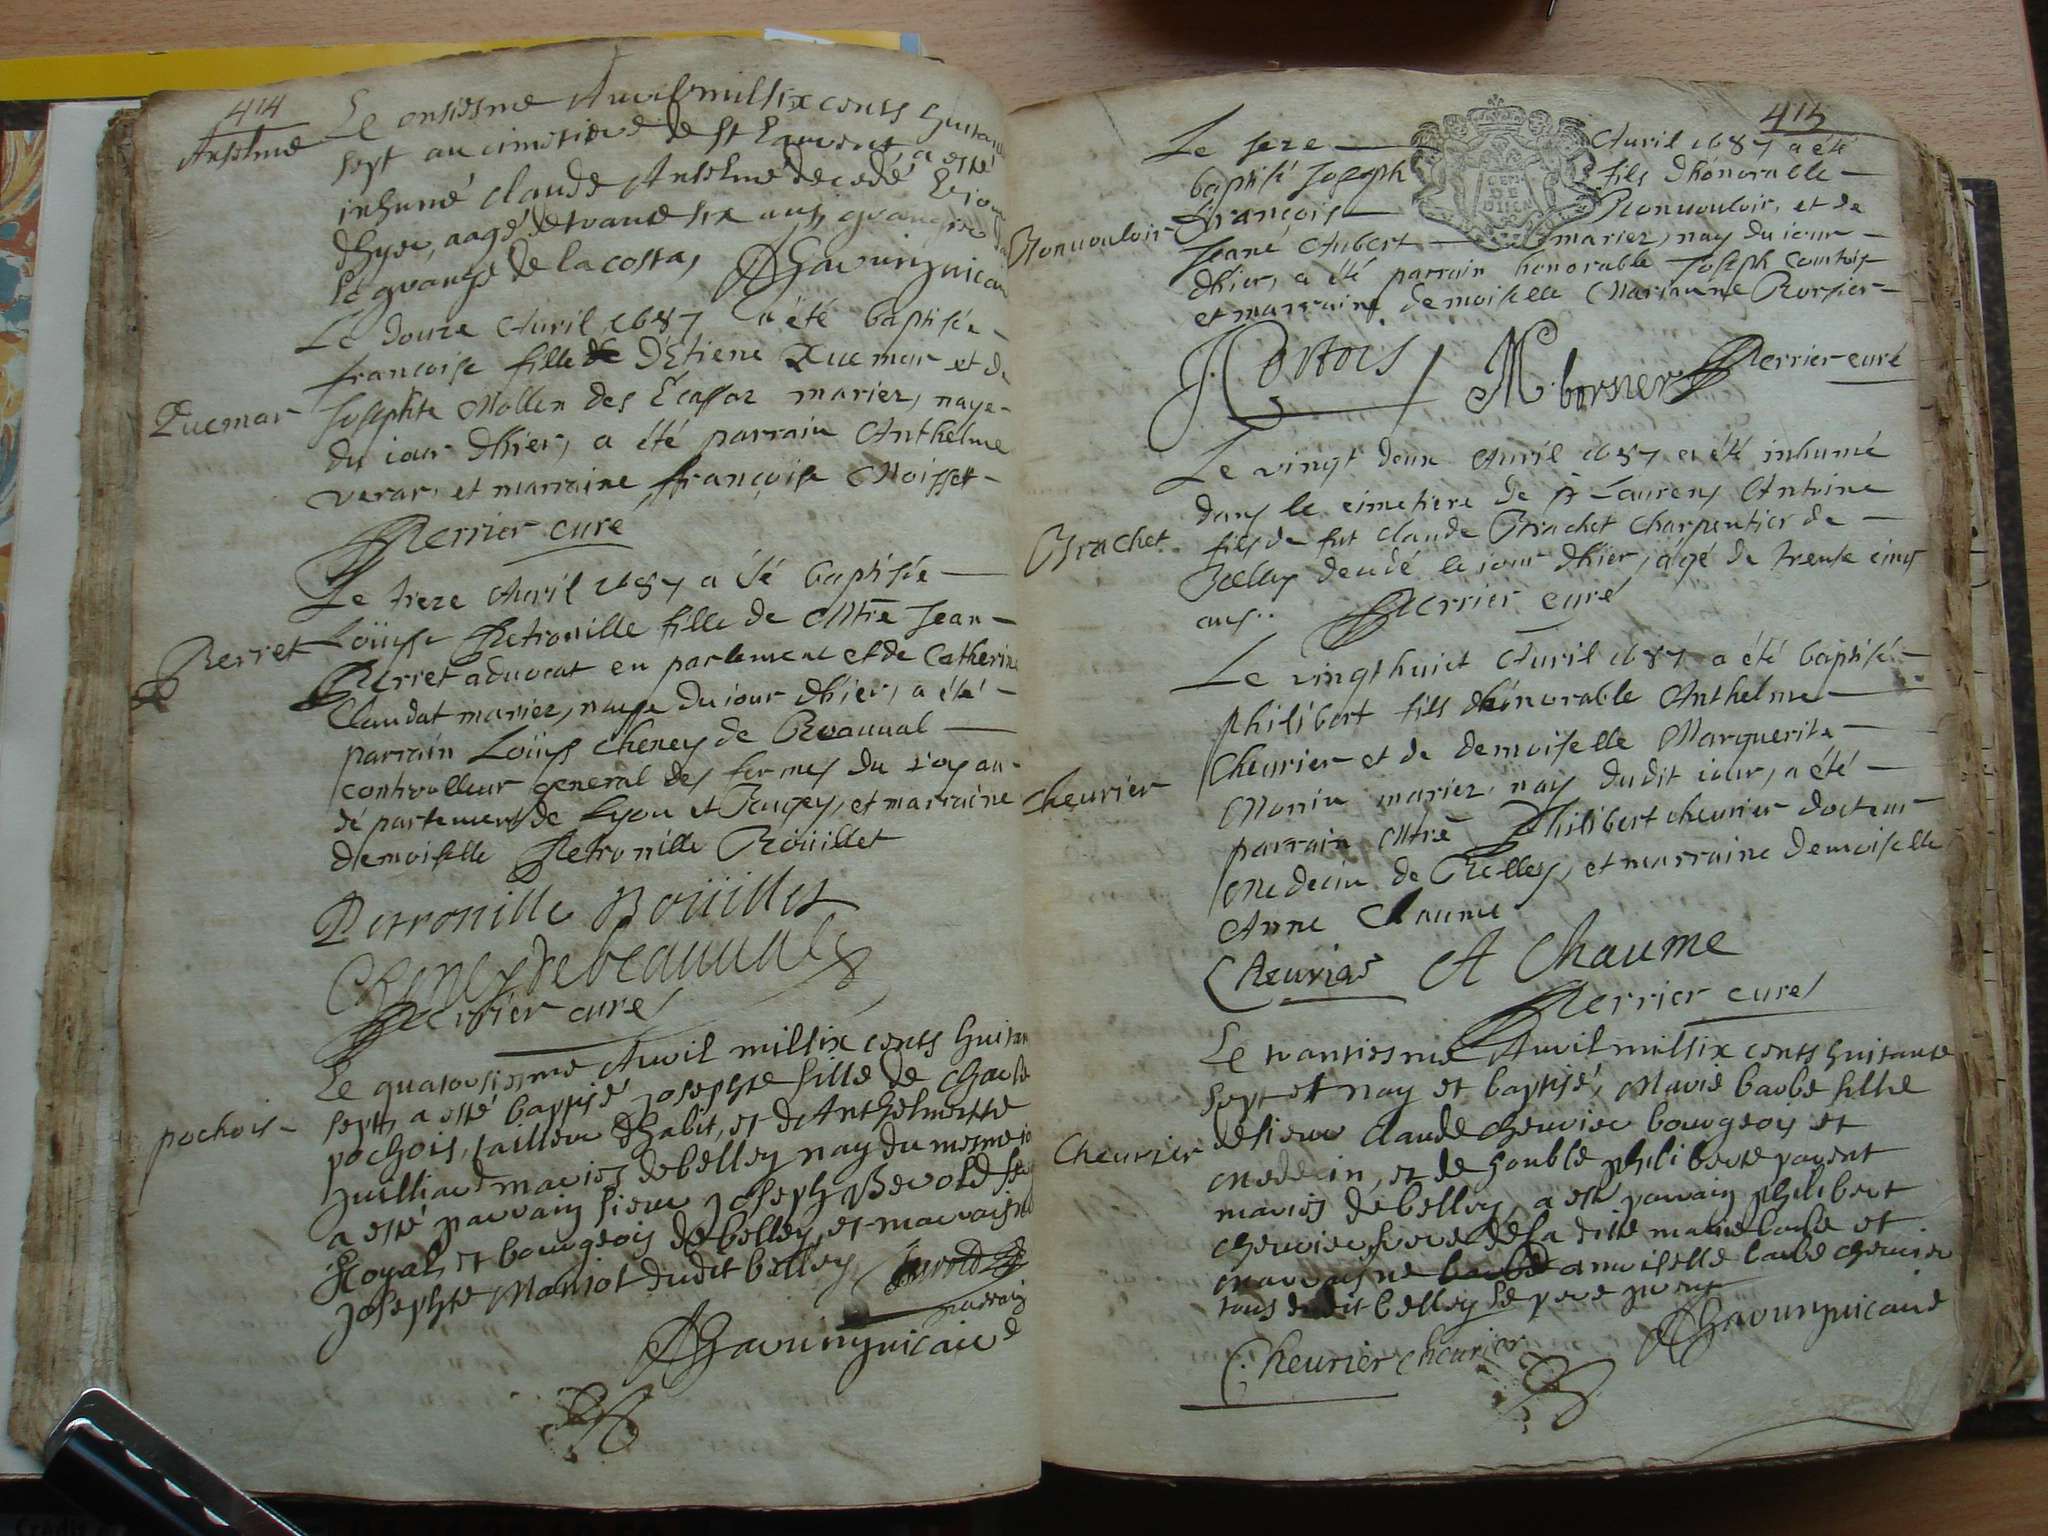 414
Anselme
Le onsiesme Auvil mil six cents huitante
sept au cimetiere de st Laurent a esté
inhumé claude Anselme decedé le jour
dhyer, aagé de trante six ans, grangier de
la grange de la costa,
Le douze Avril 1687 a été baptisée
francoise fille de D'Etiene Ducmar et de
Ducmar
Josephte Mollin des Ecassaz mariez, naye
du iour dhier, a été parrain Anthelme
verar, et marraine ffrançoise Moisset
Perrier curé
Le treze Avril 1687 a été baptisée
Perret
Loüise Petronille fille de Mtre Jean
Perret advocat en parlement et de Catherine
Claudat mariez, nayye du iour dhier, a été
parrain Loüys cheney de Beauual
controlleur general des fermes du roy au
département de Lyon et Bugey, et marraine
demoiselle Petronille Boüillet
Petronille Boüillet
Cheney de beauual
Perrier curé
Le quatorsiesme Auvil mil six cents huitante
sept, a esté baptisé josephte fille de charle
pochois
pochois, tailleur dhabit, et de Anthelmette
juilliard mariés de belley nay du mesme jo
a esté parrain sieur joseph Berold
Royal, et bourgeois de belley, et marraisne
josephte Mariot dudit belley
parrain
415
Le seze Avril 1687 a été
baptisé Joseph fils dhonorable
françois Bonuouloir, et de
Bonuouloir
Jeane Aubert mariez, nay du iour
dhier, a été parrain honorable Joseph Courtois
et marraine demoiselle Marianne Borsier
J Cortois M. borsier Perrier curé
Le vingt deux Avril 1687 a été inhumé
dans le cimetiere de st Laurens Antoine
Brachet
fils de fut claude Brachet charpentier de
Belley decedé le iour dhier, agé de trente cinq
ans.. Perrier curé
Le vingthuict Avril 1687 a été baptisé
philibert fils dhonorable Anthelme
Cheurier et de demoiselle Marguerite
cheurier
Monin mariez, nay dudit iour, a été
parrain Mtre Philibert cheurier docteur
Medecin de Belley, et marraine demoiselle
Anne Chaume
Cheurier A Chaume
Perrier curé
Le trantiesme Auvil mil six cents huitante
sept est nay et baptisé, Marie barbe fille
de sieur claude cheurier bourgeois et
Cheurier
medecin, et de honble philiberte parent
mariés de belley, a esté parrain philibert
cheurier frere de la dite marie barbe et
marraisne barbe damoiselle barbe cheurier
tous dudit belley le pere
Cheurier cheurier